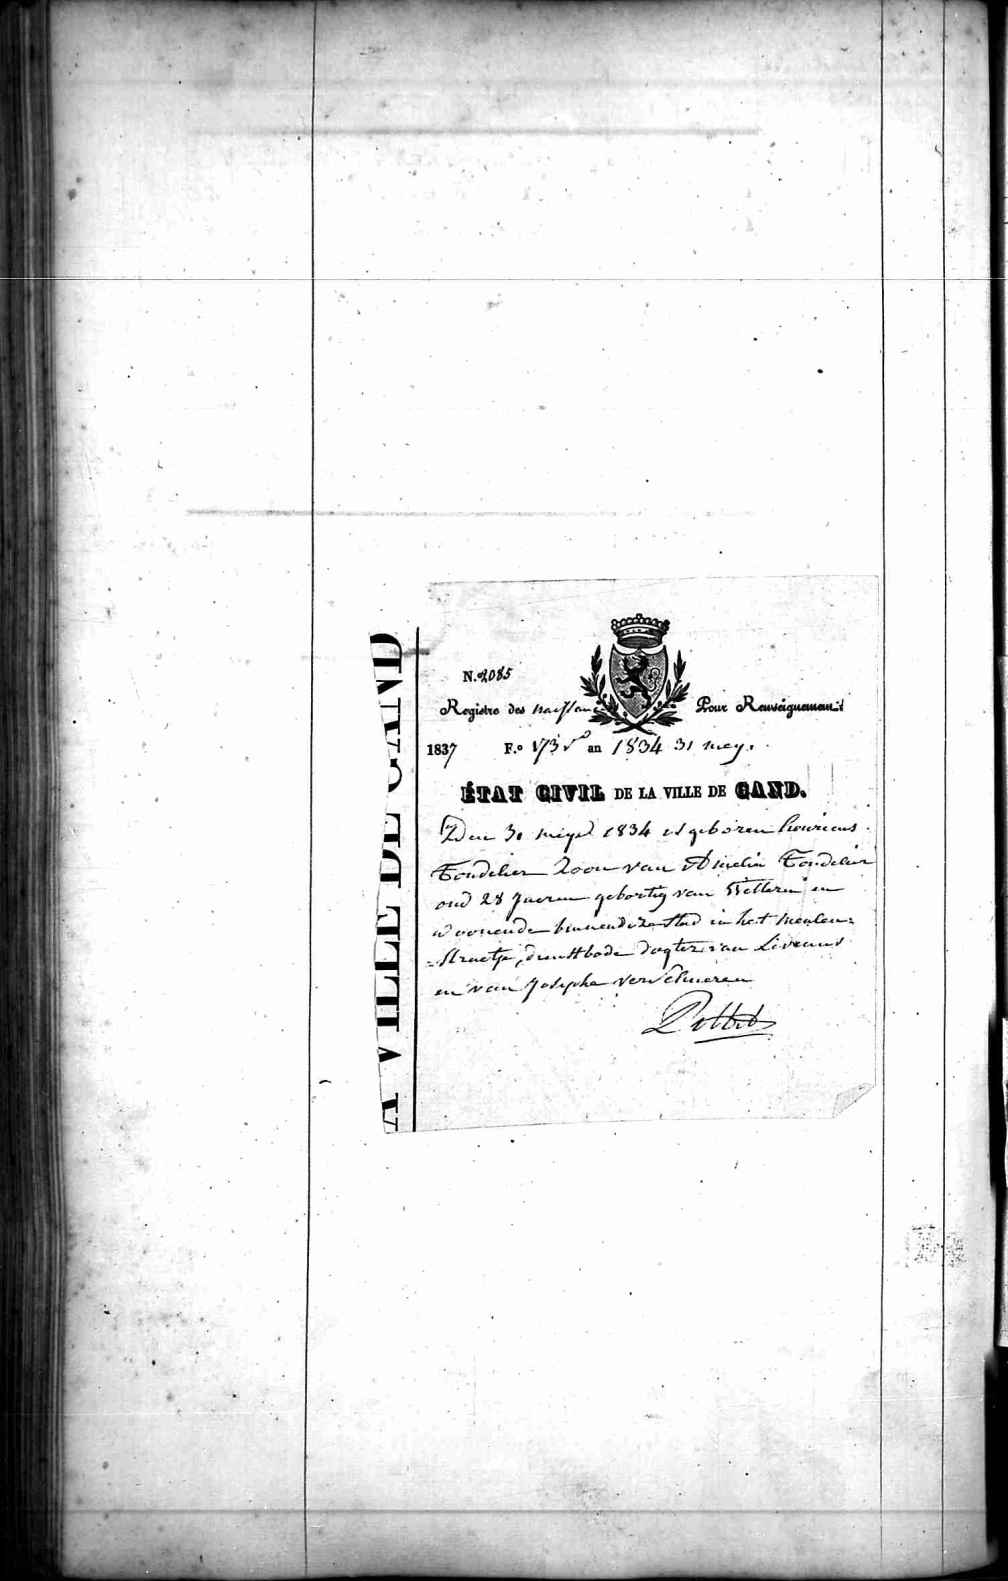 A VILLE DE GAND
N.º 2085
Registre des naissance Pour Renseignement
1837 F.º 173 vº an 1834 31 mey.
ÉTAT CIVIL DE LA VILLE DE GAND.
Den 30 mey 1834 is geboren
Tondelier Zoon van Amelia Tondelier
oud 28 Jaeren gebortig van Wetteren en
woonende binnen deze Stad in het meulen=
=Straetje, dienstbode dogter van Livinus
en van Josepha